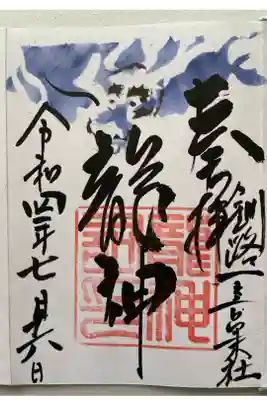 奉拝
釧路一之宮末社
龍神
龍神
令和四年七月廿六日